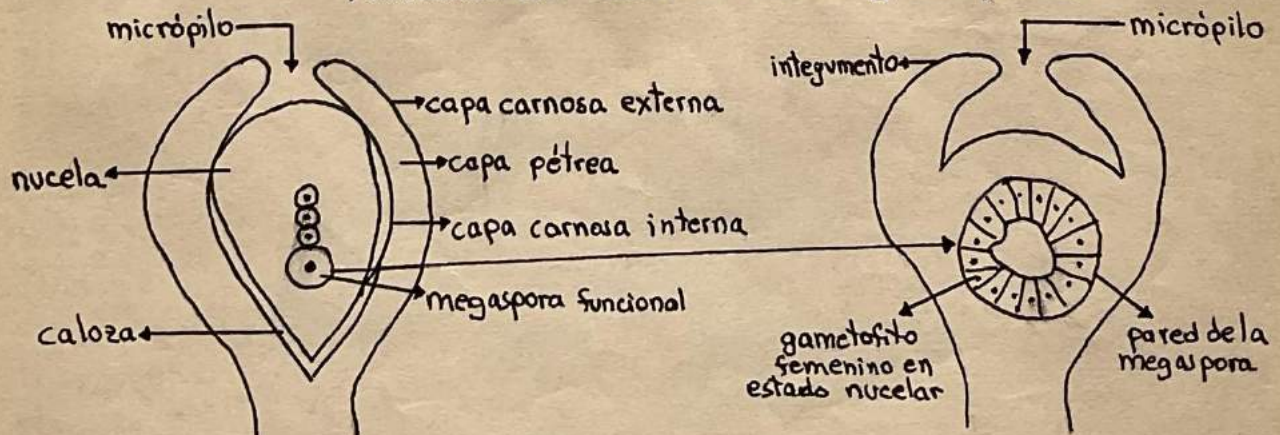 micrópilo
capa carnosa externa
capa pétrea
nucela
capa carnosa interna
megaspora funcional
caloza
micrópilo
integumento
gametofito
femenino en
estado nucelar
pared de la
megaspora